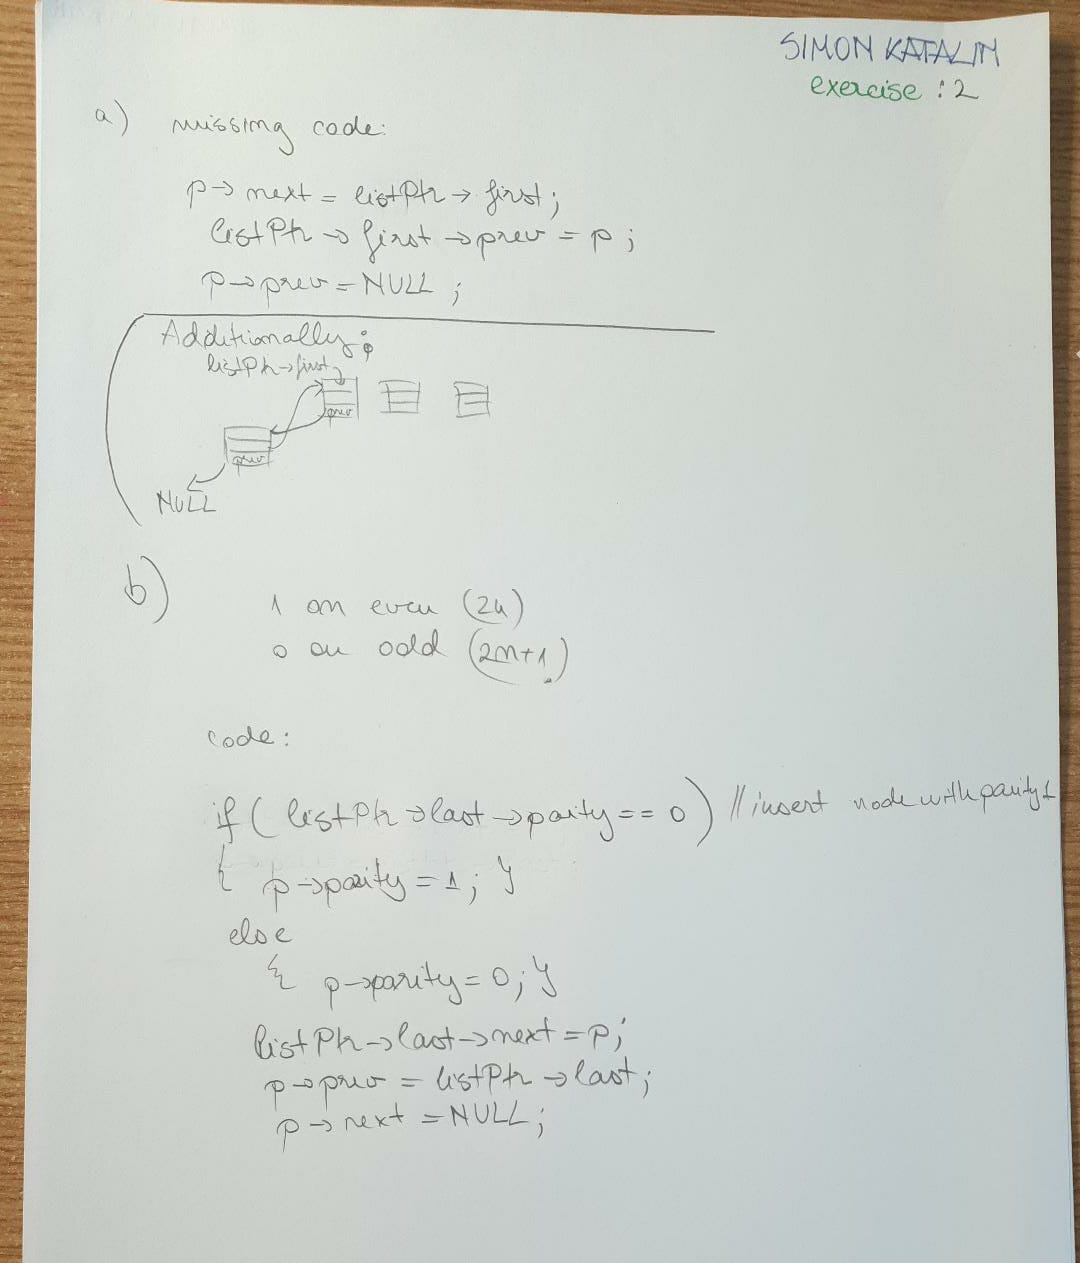 SIMON KATALIN
exercise : 2
a) missing code:
p→ next = listPtr → first;
listPtr → first → prev = p ;
p→prev = NULL ;
Additionally:
listPtr→first
prev
prev
NULL
b)
1 on even (2n)
0 on odd (2n+1)
code:
if ( listPtr →last →parity == 0 ) // insert node with parity 1
{ p→parity = 1; }
else
{ p→parity = 0; }
listPtr→last→next = p;
p→prev = listPtr → last;
p→ next = NULL;